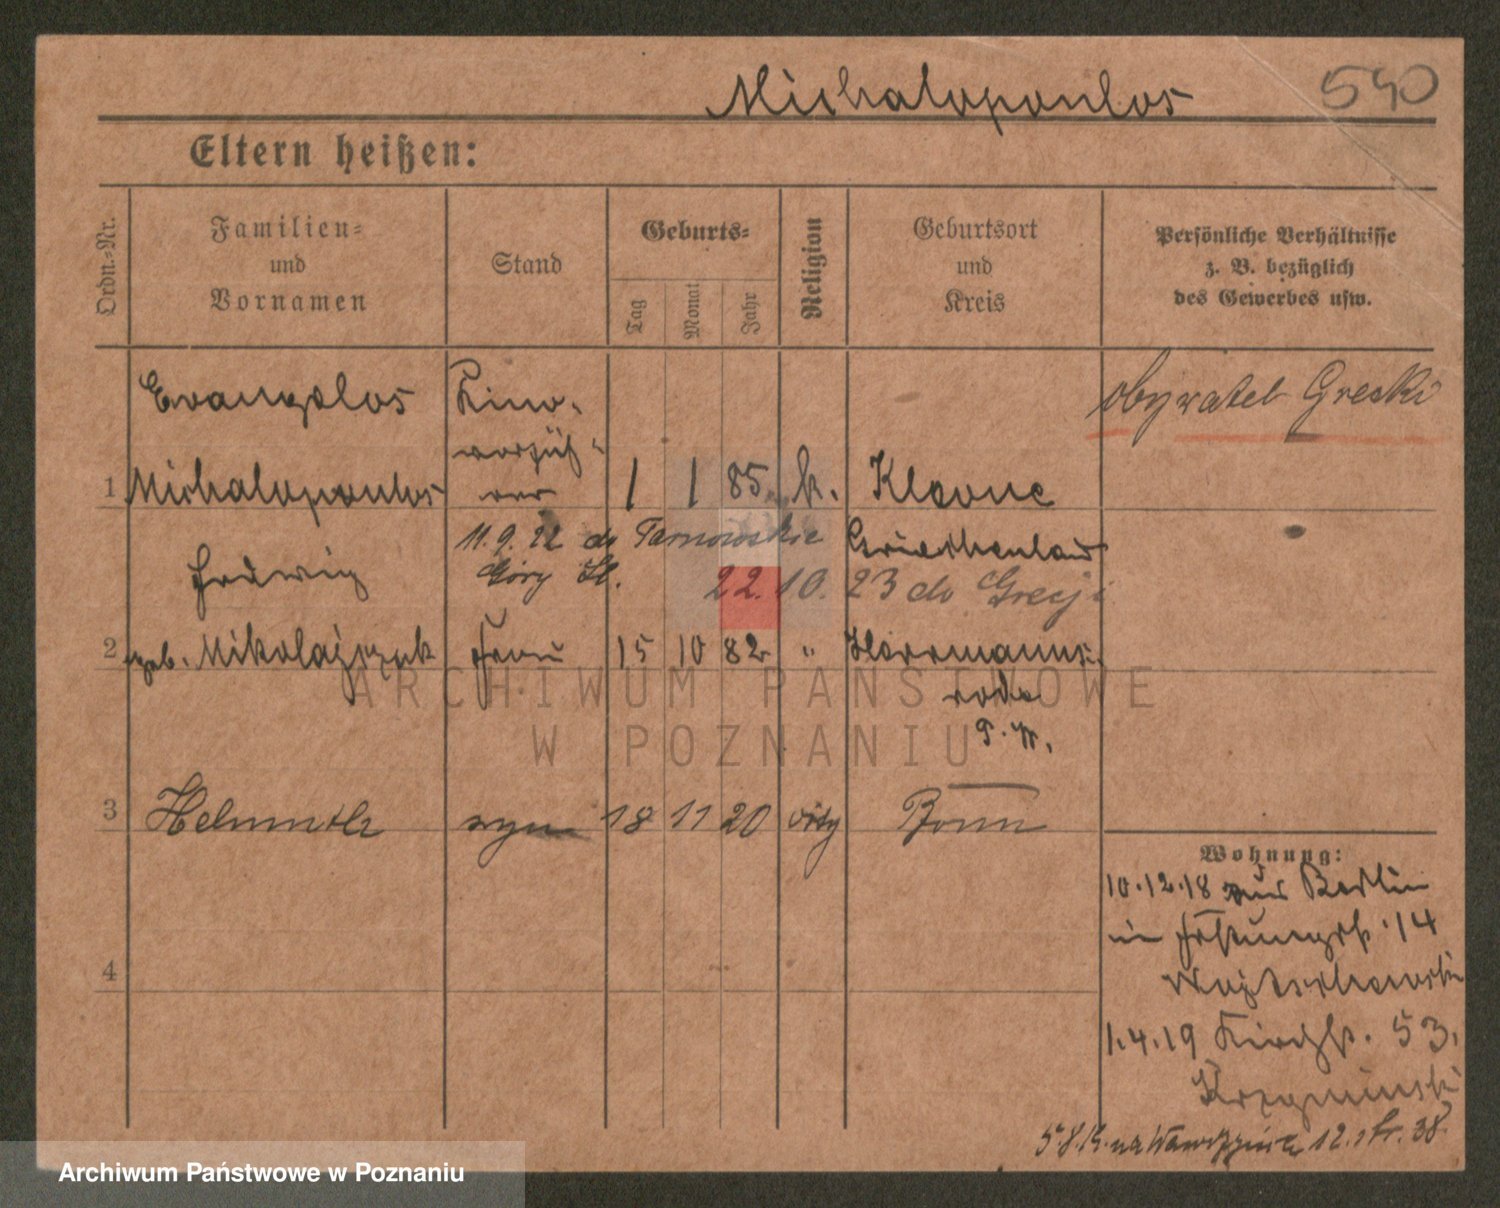 Michalopoulos 540
Eltern heißen:
Ordn.-Nr.
Familien-
und
Vornamen
Stand
Geburts-
Tag
Monat
Jahr
Religion
Geburtsort
und
Kreis
Persönliche Verhältnisse
z. B. bezüglich
des Gewerbes usw.
Evangelos Kino-
obywatel Grecki
vorfüh-
1 Michalopoulos rer 1 1 85 k. Kleone
11.9.22 do Tarnowskie Griechenland
Hedwig Góry 22.10.23 do Grecji
2 geb. Mikolajczak Frau 15 10 82 " Herrmanns-
rode
3 Helmuth syn 18 11 20 Bonn
4
Wohnung:
10.12.18 aus Berlin
in Festungsst. 14
1.4.19 Kirchst. 53.
12. 38
ARCHIWUM PAŃSTWOWE
W POZNANIU
Archiwum Państwowe w Poznaniu